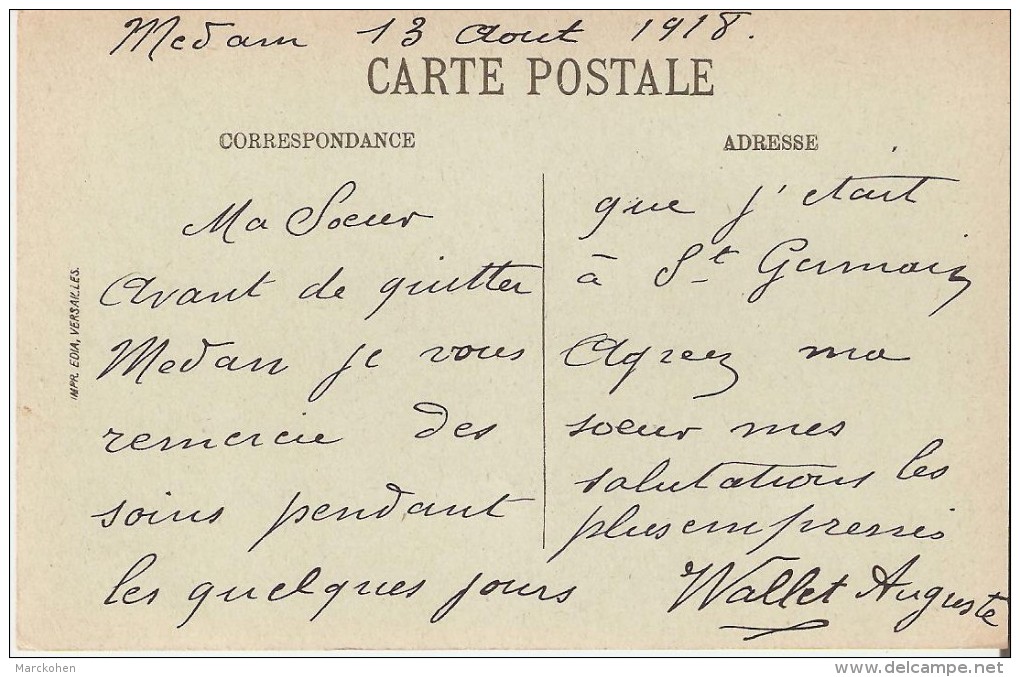 Medam 13 Aout 1918.
CARTE POSTALE
CORRESPONDANCE
ADRESSE
Ma Soeur
Avant de quitter
Medan je vous
remercie des
soins pendant
les quelques jours
que j'etait
à St Germain
Agreez ma
soeur mes
salutations les
plus empressés
Wallet Auguste
IMPR. EDIA, VERSAILLES.
Marckohen
www.delcampe.net